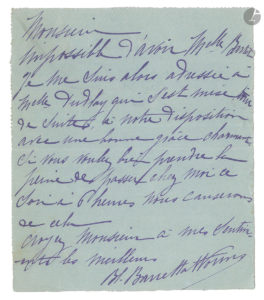 Monsieur
impossible d'avoir Melle Bartet
je me suis alors adressée à
Melle Dudlay qui s'est mise tout
de suite, à notre disposition
avec une bonne grâce charmante
Si vous voulez bien prendre la
peine de passer chez moi ce
soir à 6 heures nous causerons
de cela
croyez Monsieur à mes sentim
ents les meilleurs
Bl. Barretta Worms